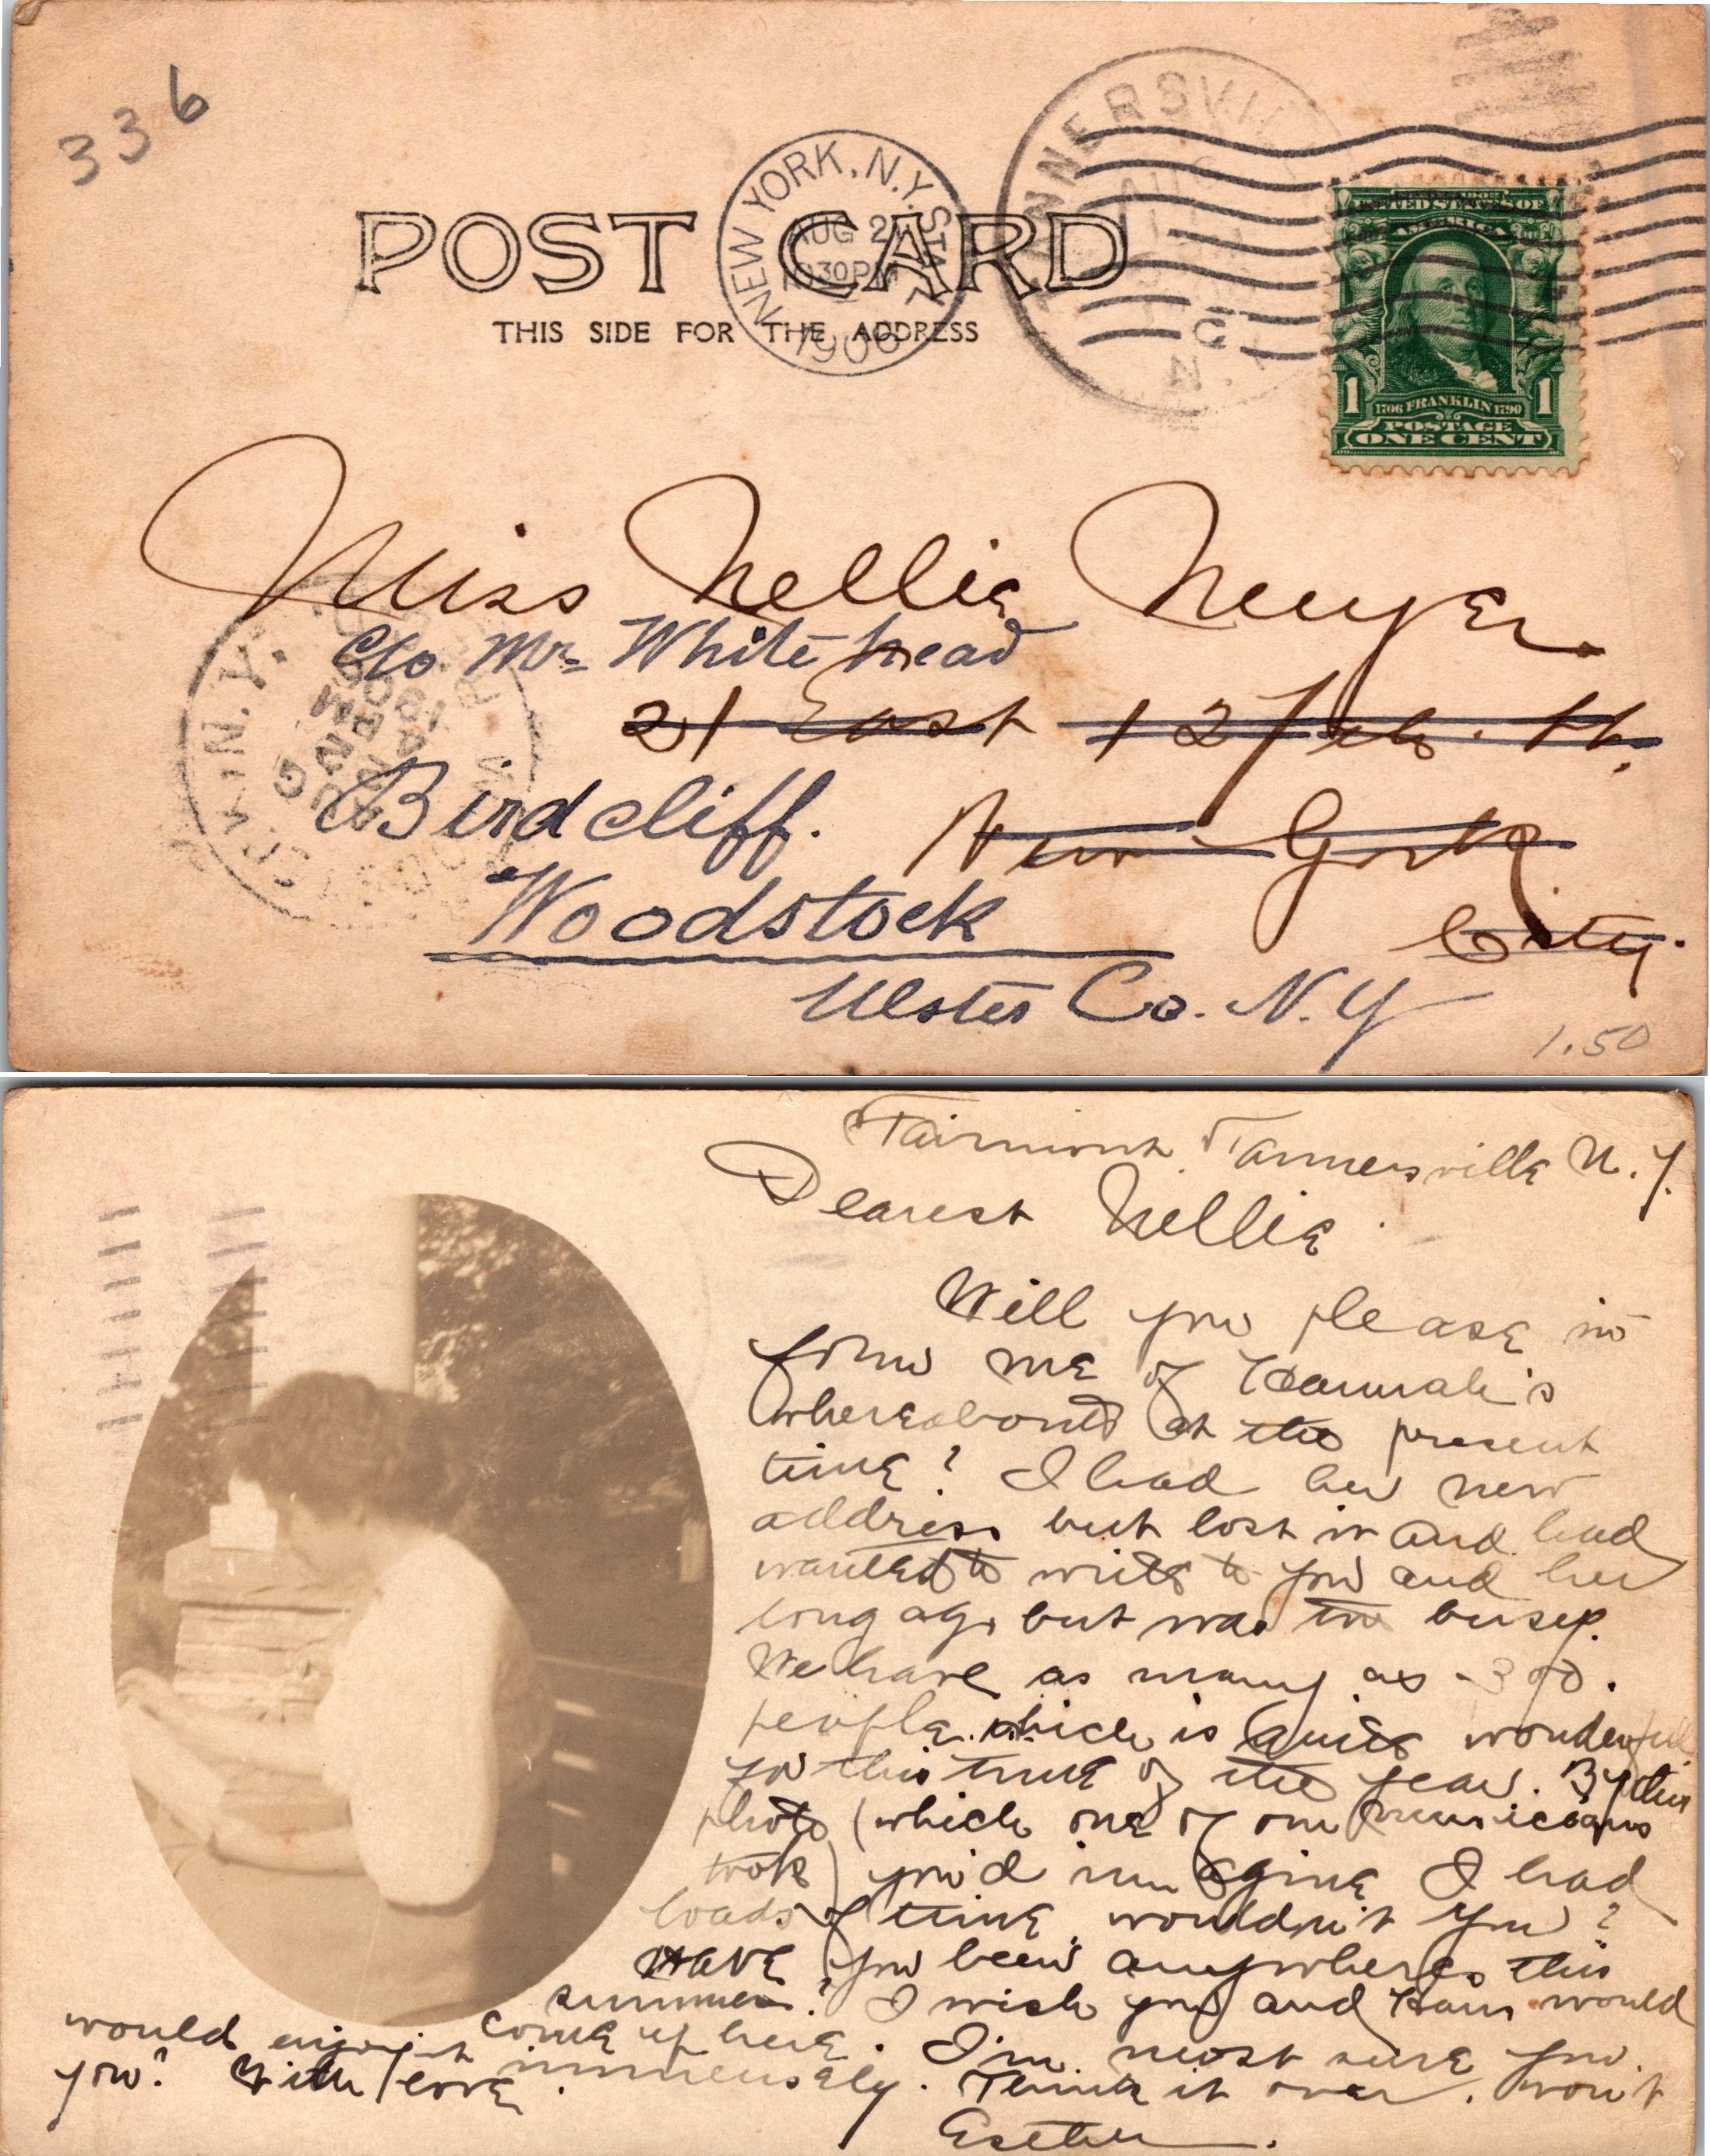 336
POST CARD
THIS SIDE FOR THE ADDRESS
NEW YORK, N.Y. STA. L
AUG 2
30 PM
1906
NNERSVI
AUG
N.
UNITED STATES OF AMERICA
1 1706 FRANKLIN 1790 1
POSTAGE
ONE CENT
Miss Nellie Meyer
C/o Mr. Whitehead
21 East 127th St.
Birdcliff.
New York
Woodstock
City.
Ulster Co. N.Y
1.50
N.Y.
AUG
PM
1906
Fairmont Tannersville N.Y.
Dearest Nellie
Will you please in
form me of Hannah's
whereabouts at the present
time? I had her new
address but lost it and had
wanted to write to you and her
long ago but was too busy.
We have as many as 300.
people which is quite wonderful
for this time of the year. By this
photo (which one of our musicians
took) you'd imagine I had
loads of time wouldn't you?
Have you been anywheres this
summer? I wish you and Han would
come up here. I'm most sure you
would enjoy it immensely. Think it over. Won't
you? With love
Esther.